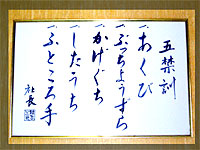 五禁訓
一、あくび
一、ぶっちょうずら
一、かげぐち
一、したうち
一、ふところ手
社長